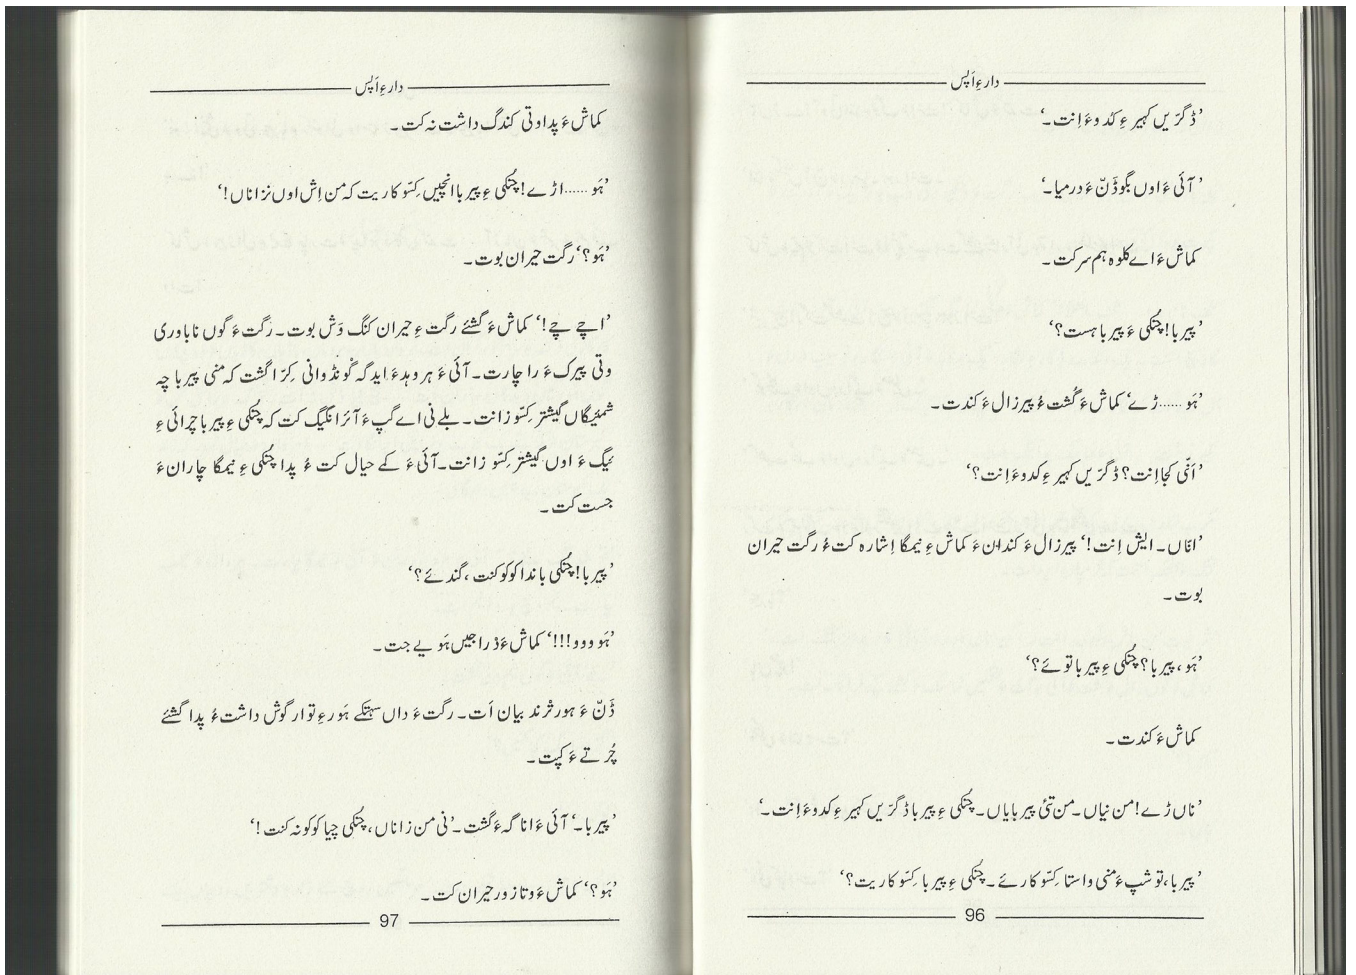 دارءِ اَپس
’ڈگرّیں کہیرءِ کدوءَ اِنت۔‘
’آئیءَ اوں بگو ڈَنّءَ درمیا۔‘
کماشءَ اے کلوہ ہم سرکت۔
’پیربا! چُکّیءَ پیرباہست؟‘
’ہَو ......ڑے‘ کماشءَ گُشت ءُ پیرزالءَ کندت۔
’اَنّی کجا اِنت؟ ڈگرّیں کہیرءِ کدوءَ اِنت؟‘
’انّاں۔ ایش اِنت!‘ پیرزالءَ کندانءَ کماشءِ نیمگا اِشارہ کت ءُ رگت حیران
بوت۔
’ہَو، پیربا؟ چُکّیءِ پیربا توئے؟‘
کماشءَ کندت۔
’ناں ڑے! من نیاں۔ من تئی پیربایاں۔ چُکّیءِ پیربا ڈگرّیں کہیرءِ کدوءَ اِنت۔‘
’پیربا، تو شپءَ منی واستا کِسّو کارئے۔ چُکّیءِ پیربا کِسّو کاریت؟‘
96
دارءِ اَپس
کماشءَ پدا وتی کندگ داشت نہ کت۔
’ہَو ......اڑے! چُکّیءِ پیربا انچیں کِسّو کاریت کہ من اِش اوں نزاناں!‘
’ہَو؟‘ رگت حیران بوت۔
’اچے چے!‘ کماشءَ گشئے رگتءِ حیران کنگ وَش بوت۔ رَگتءَ گوں ناباوری
وتی پیرکءَ را چارت۔ آئیءَ ہر وہدءَ اید گہ گونڈوانی کِرّا گشت کہ منی پیربا چہ
شمئیگاں گیشتر کِسّو زانت۔ بلے نی اے گپءَ آئرا نگیگ کت کہ چُکّیءِ پیربا چرائیءِ
ئیگءَ اوں گیشتر کِسّو زانت۔ آئیءَ کے حیال کت ءُ پدا چُکّیءِ نیمگا چارانءَ
جست کت۔
’پیربا! چُکّی باندا کوکو کنت، گندئے؟‘
’ہَوووو!!!‘ کماشءَ ڈراجیں ہَویے جت۔
ڈَنّءَ ہور ثرند بیان اَت۔ رگتءَ داں سہتکے ہَورءِ توار گوش داشت ءُ پدا گشئے
چُرتےءَ کپت۔
’پیربا۔‘ آئیءَ اناگہءَ گشت۔ ’نی من زاناں، چُکّی چیا کوکو نہ کنت!‘
’ہَو؟‘ کماشءَ وتا زور حیران کت۔
97